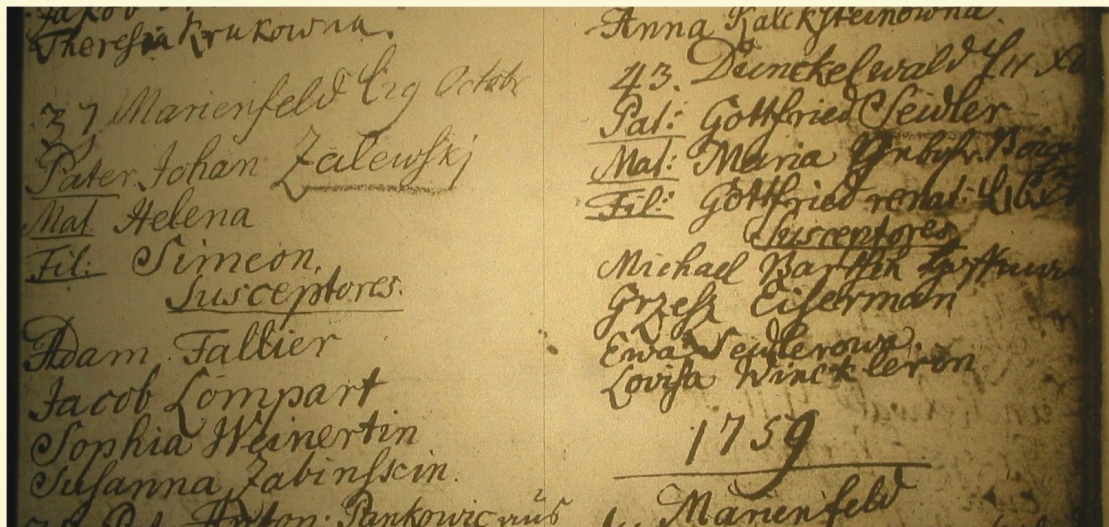 Jakob
Theresia Krukowna.
37 Marienfeld Octobr
Pater Johan Zalewskj
Mat Helena
Fil: Simeon.
Susceptores.
Adam Fallier
Jacob Lompart
Sophia Weinertin
Susanna Zabinsscin.
Anton: Pankowic aus
Anna Kalcksteinowna.
43. Dunckelwald
Pat: Gottfried Seidler
Mat: Maria
Fil: Gottfried
Susceptores
Michael
Grzesz Eiserman
Ewa Seidlerowa.
Lovisa Winckleron
1759
Marienfeld